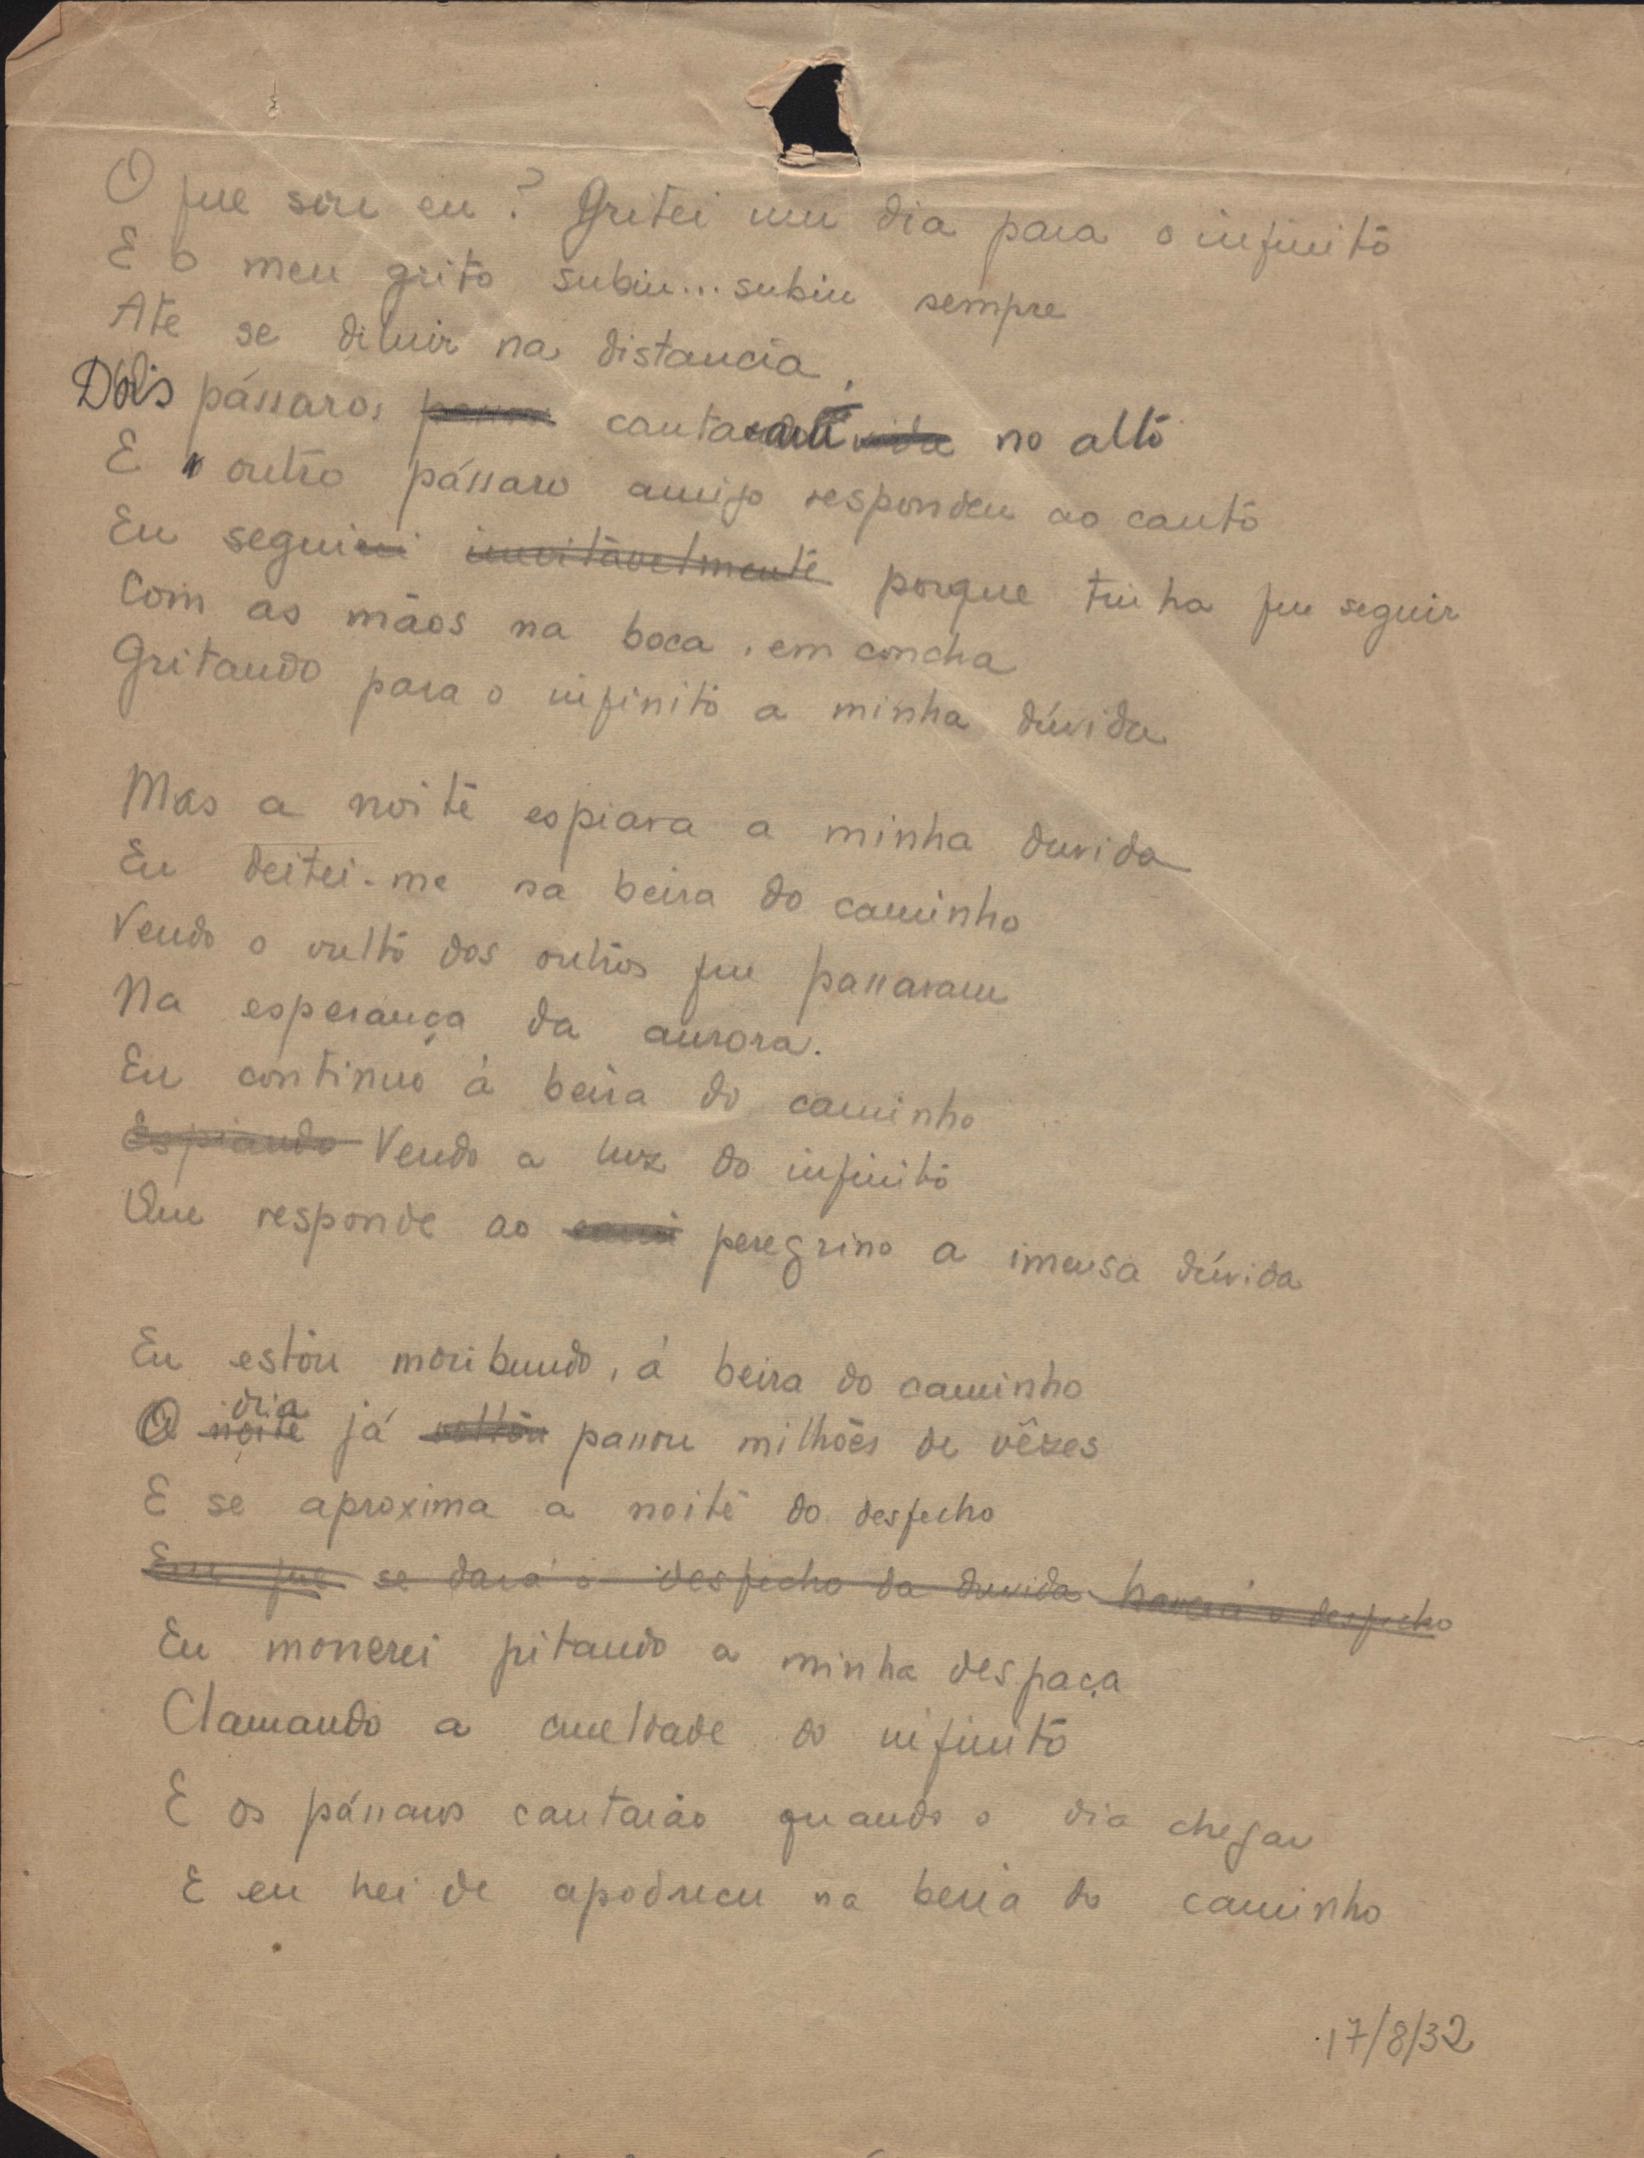 O que sou eu? Gritei um dia para o infinito
E o meu grito subiu... subiu sempre
Ate se diluir na distancia.
Dois pássaros cantaram no alto
E outro pássaro amigo respondeu ao canto
Eu segui inevitavelmente porque tinha que seguir
Com as mãos na boca, em concha
Gritando para o infinito a minha dúvida
Mas a noite espiava a minha duvida
Eu deitei-me na beira do caminho
Vendo o vulto dos outros que passavam
Na esperança da aurora.
Eu continuo á beira do caminho
Espiando Vendo a luz do infinito
Que responde ao peregrino a imensa dúvida
Eu estou moribundo, á beira do caminho
dia
O noite já voltou passou milhões de vêzes
E se aproxima a noite do desfecho
Em que se dará o desfecho da duvida haverá o desfecho
Eu morrerei gritando a minha desgraça
Clamando a crueldade do infinito
E os pássaros cantarão quando o dia chegar
E eu hei de apodrecer na beira do caminho
17/8/32